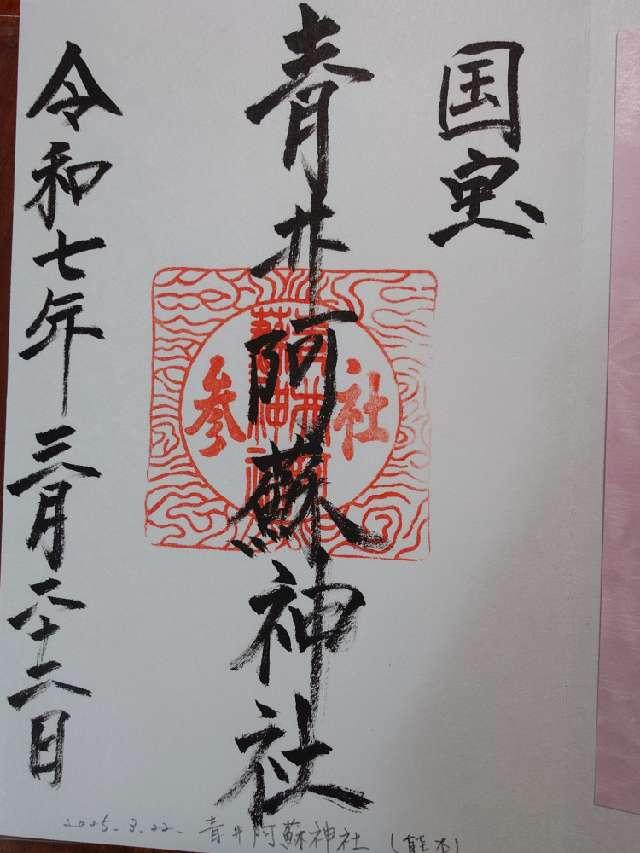 国宝
青井阿蘇神社
社参
青井阿蘇神社
令和七年三月二十二日
2025.3.22. 青井阿蘇神社 (熊本)